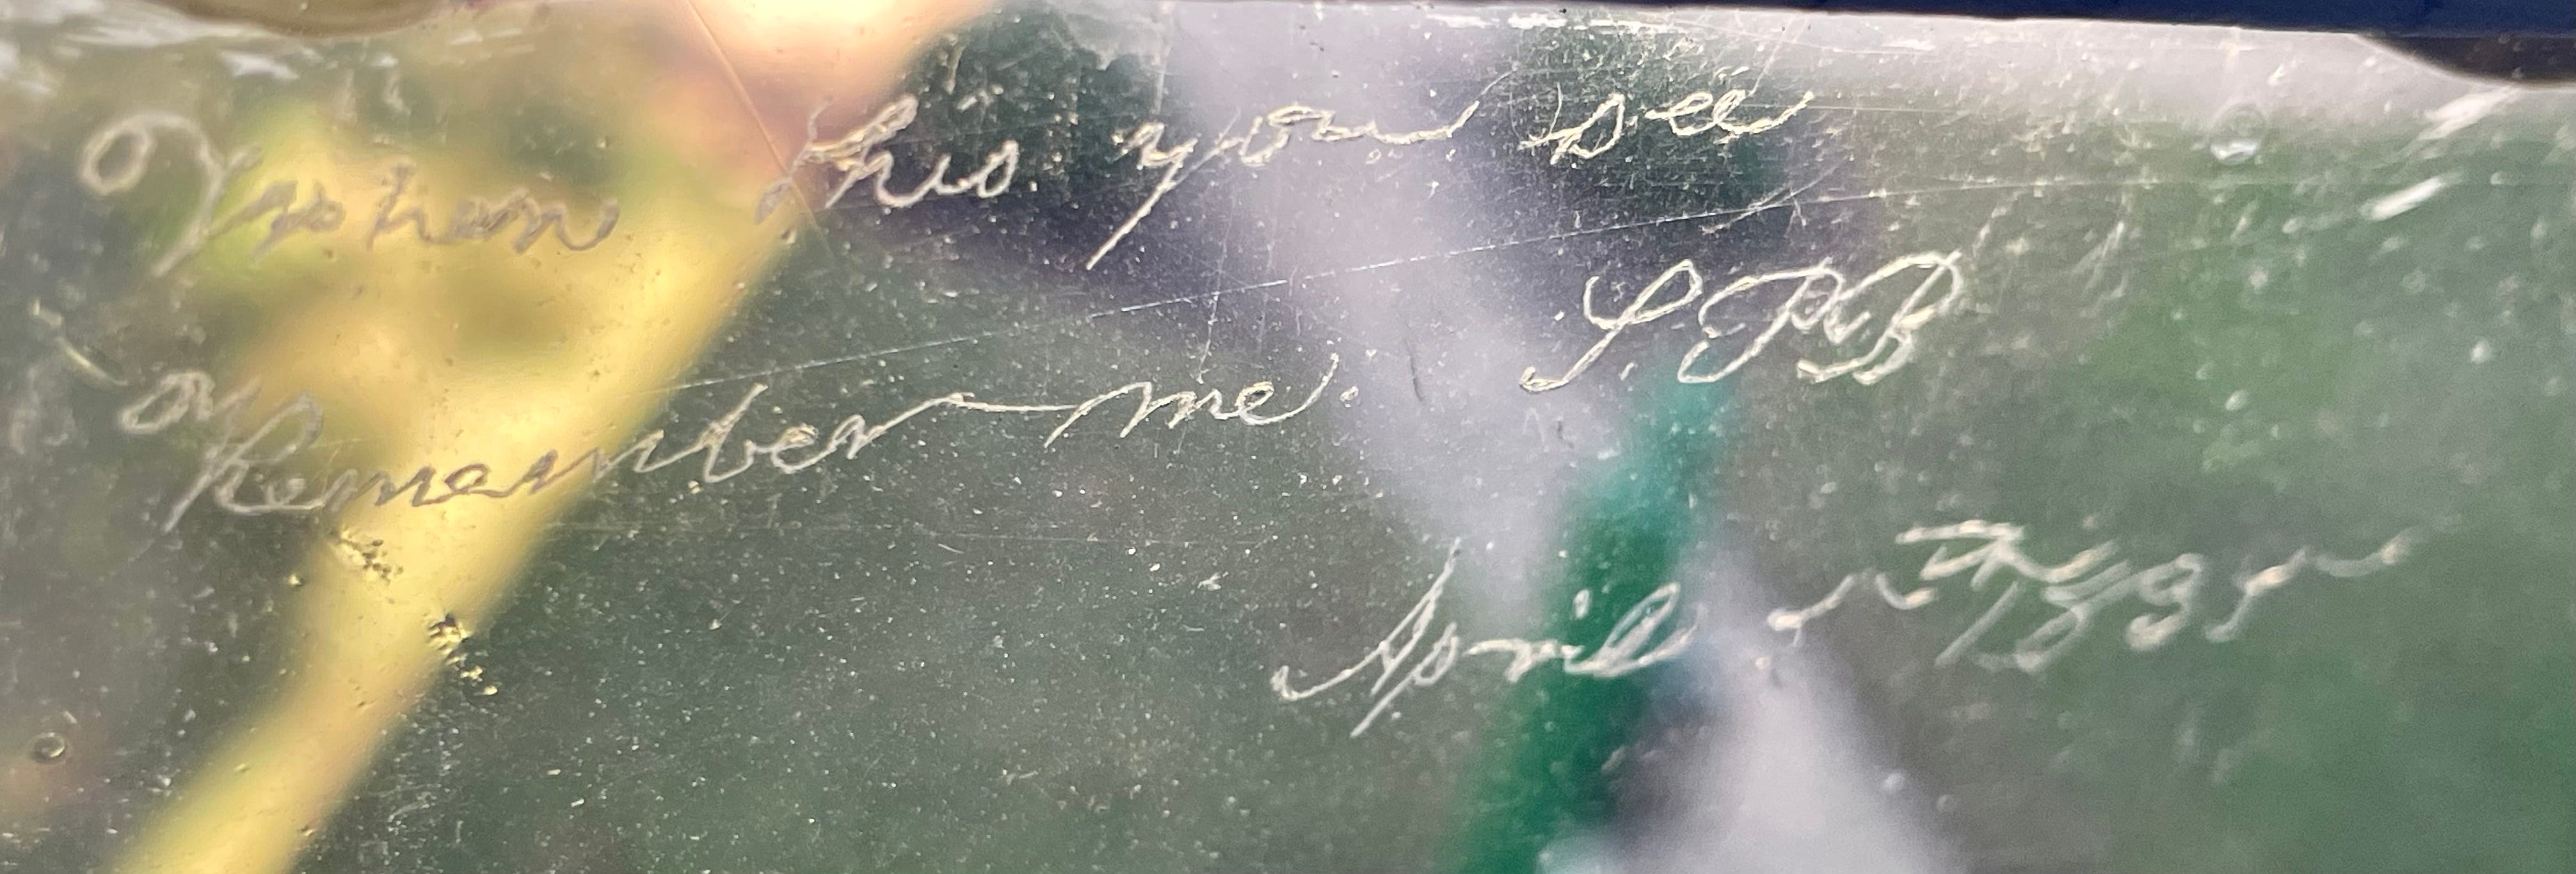 When this you see
Remember me. S.P.B
April th 188